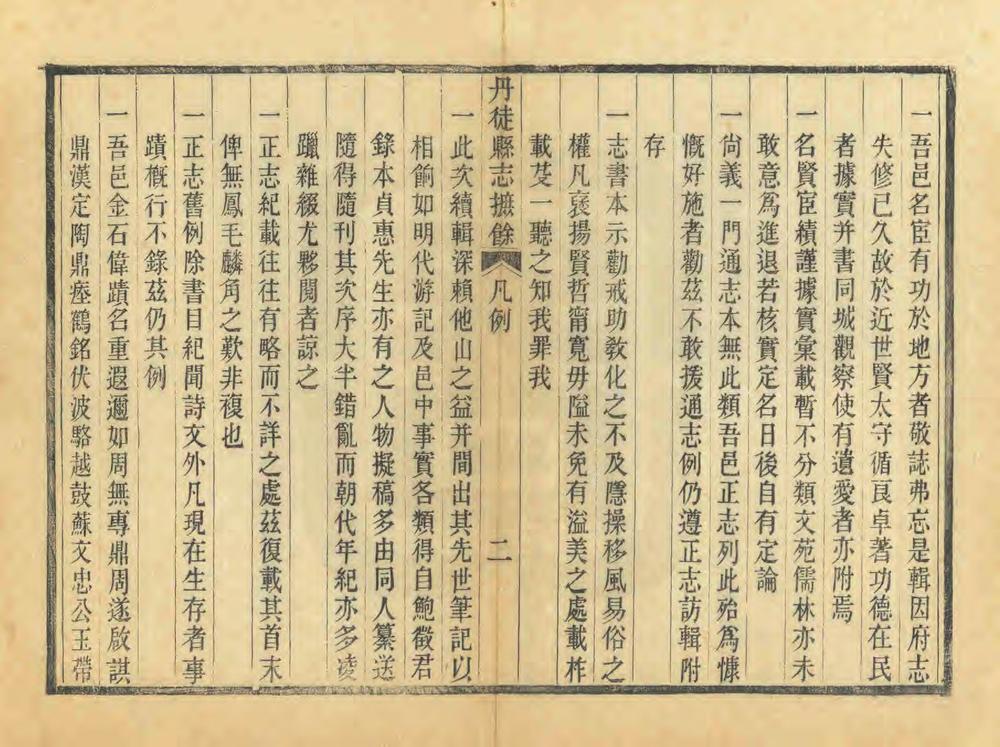 一吾邑名宦有功於地方者敬誌弗忘是輯因府志
失修已久故於近世賢太守循良卓著功德在民
者據實并書同城觀察使有遺愛者亦附焉
一名賢宦績謹據實彙載暫不分類文苑儒林亦未
敢意爲進退若核實定名日後自有定論
一尙義一門通志本無此類吾邑正志列此殆爲慷
慨好施者勸茲不敢援通志例仍遵正志訪輯附
存
一志書本示勸戒助敎化之不及隱操移風易俗之
權凡襃揚賢哲甯寬毋隘未免有溢美之處載柞
載芟一聽之知我罪我
丹徒縣志摭餘 凡例 二
一此次續輯深賴他山之益并間出其先世筆記以
相餉如明代游記及邑中事實各類得自鮑徵君
錄本貞惠先生亦有之人物擬稿多由同人纂送
隨得隨刊其次序大半錯亂而朝代年紀亦多凌
躐雜綴尤夥閱者諒之
一正志紀載往往有略而不詳之處茲復載其首末
俾無鳳毛麟角之歎非複也
一正志舊例除書目紀聞詩文外凡現在生存者事
蹟槪行不錄茲仍其例
一吾邑金石偉蹟名重遐邇如周無專鼎周遂啟諆
鼎漢定陶鼎瘞鶴銘伏波駱越鼓蘇文忠公玉帶